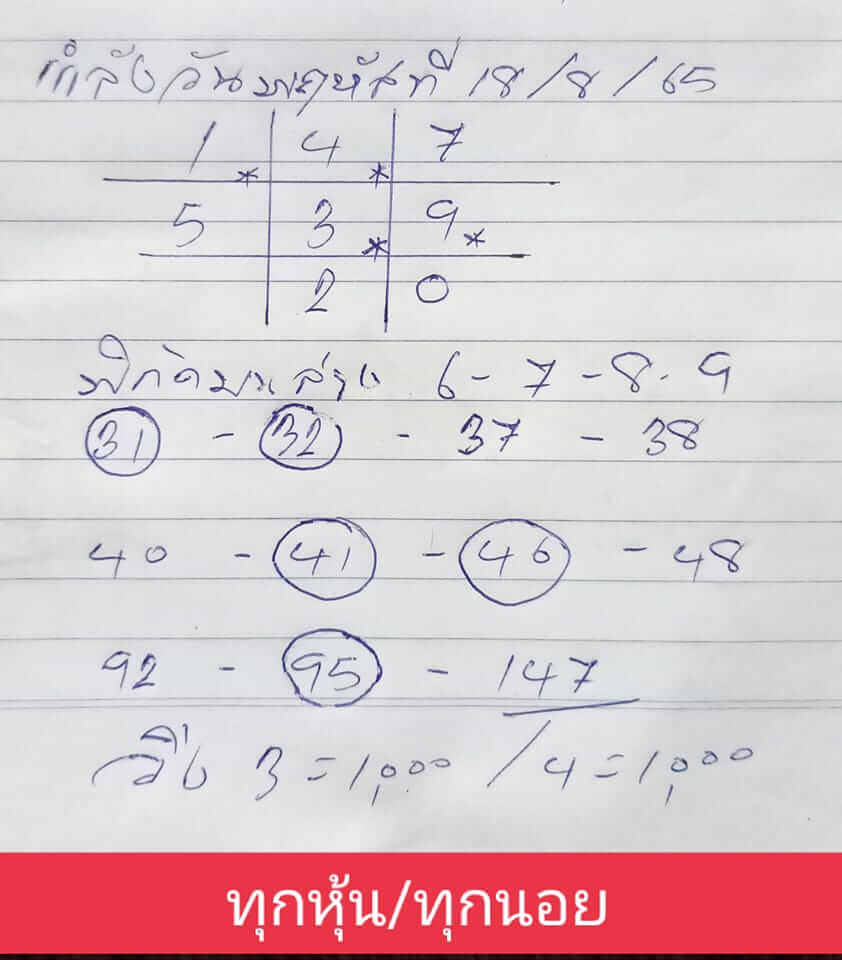 กำลังวันพฤหัสที่ 18/8/65
1 * 4 * 7
5 3 * 9 *
2 0
พิกัดบนล่าง 6-7-8-9
31 - 32 - 37 - 38
40 - 41 - 46 - 48
92 - 95 - 147
วิ่ง 3 = 1,000 / 4 = 1,000
ทุกหุ้น/ทุกนอย